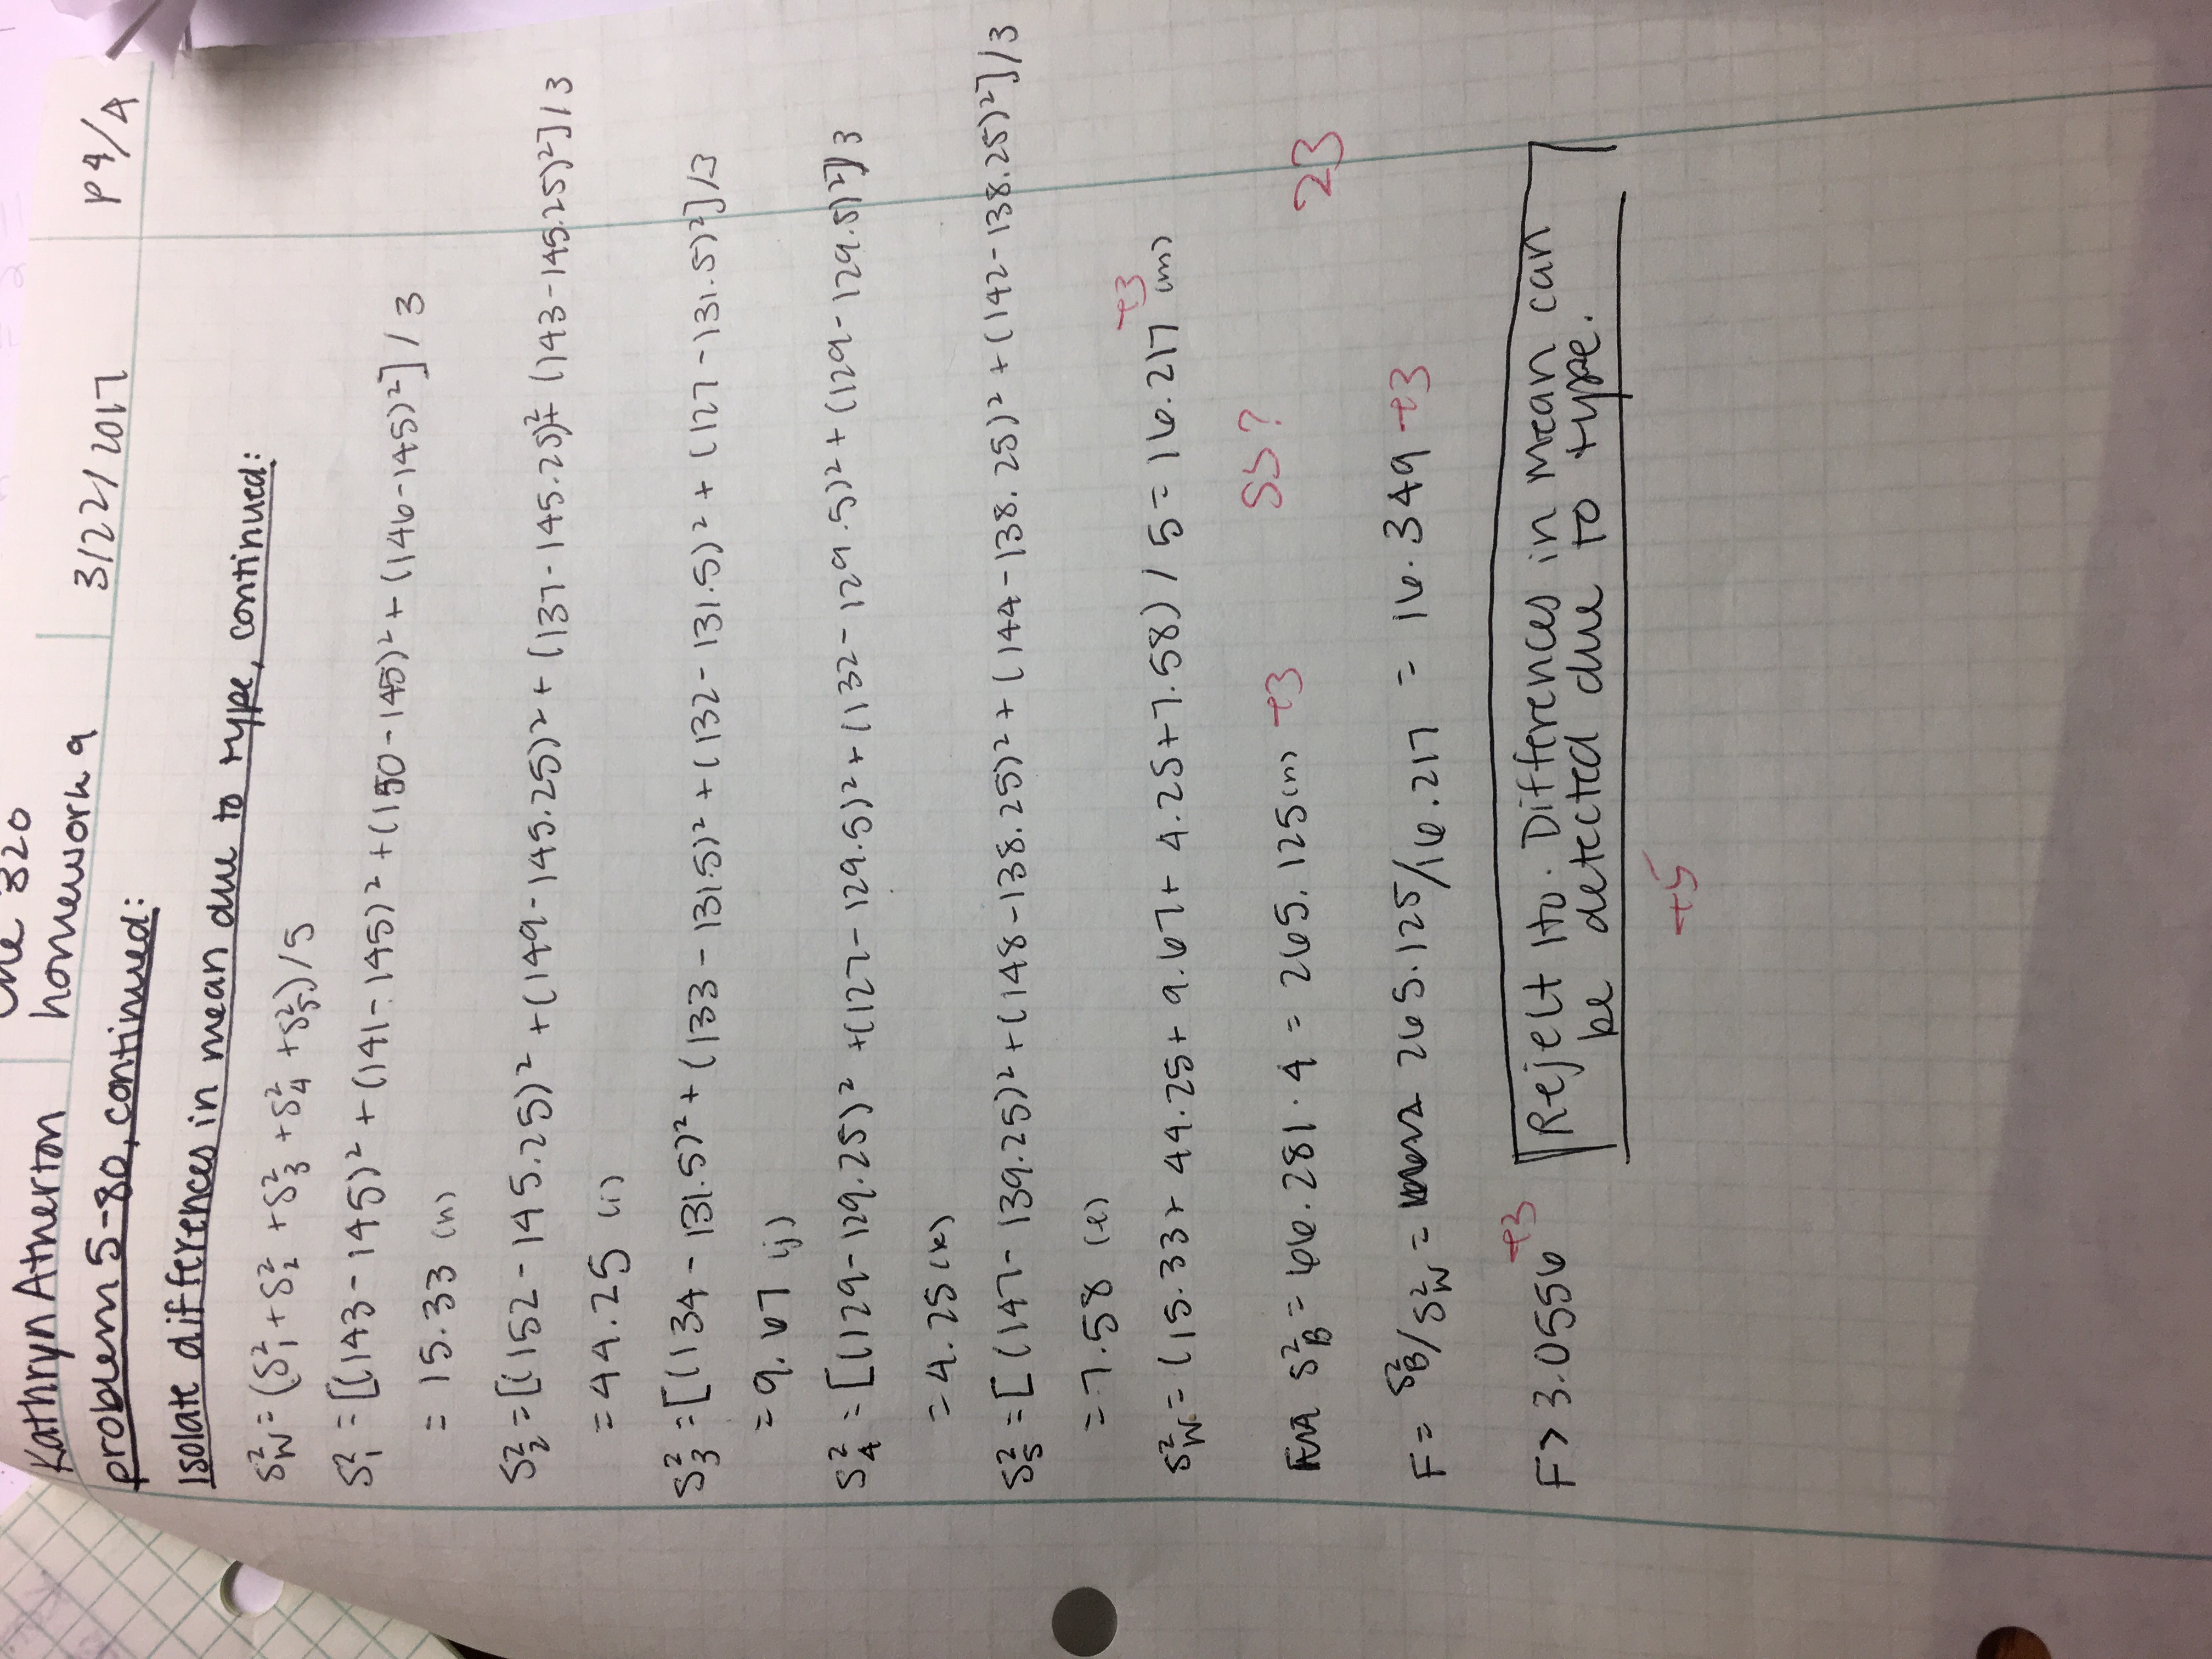 Kathryn Atherton
che 320
homework 9
3/22/2017
P4/4
problem 5-80, continued:
Isolate differences in mean due to type, continued:
S²_W = (S²_1 + S²_2 + S²_3 + S²_4 + S²_5) / 5
S²_1 = [(143 - 145)² + (141 - 145)² + (150 - 145)² + (146 - 145)²] / 3
= 15.33 (h)
S²_2 = [(152 - 145.25)² + (149 - 145.25)² + (137 - 145.25)² + (143 - 145.25)²] / 3
= 44.25 (i)
S²_3 = [(134 - 131.5)² + (133 - 131.5)² + (132 - 131.5)² + (127 - 131.5)²] / 3
= 9.67 (j)
S²_4 = [(129 - 129.25)² + (127 - 129.5)² + (132 - 129.5)² + (129 - 129.5)²] / 3
= 4.25 (k)
S²_5 = [(147 - 139.25)² + (148 - 138.25)² + (144 - 138.25)² + (142 - 138.25)²] / 3
= 7.58 (l)
S²_W = (15.33 + 44.25 + 9.67 + 4.25 + 7.58) / 5 = 16.217 (m) +3
SS?
S²_B = 66.281 · 4 = 265.125 (n) +3
23
F = S²_B / S²_W = 265.125 / 16.217 = 16.349 +3
F > 3.0556 +3
Reject Ho. Differences in mean can
be detected due to type.
+5